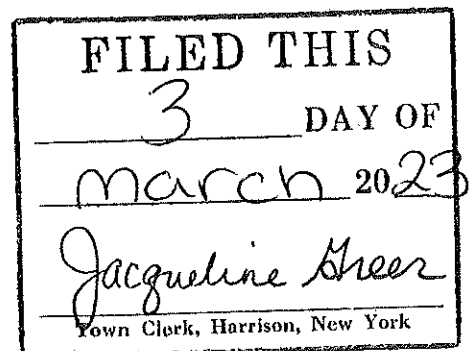 FILED THIS
3 DAY OF
March 2023
Jacqueline Greer
Town Clerk, Harrison, New York